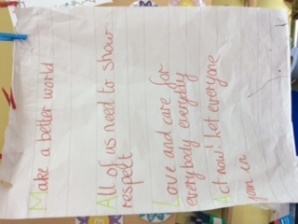 Make a better world
All of us need to show
respect
Love and care for
everybody everyday
Act now! Let everyone
join in